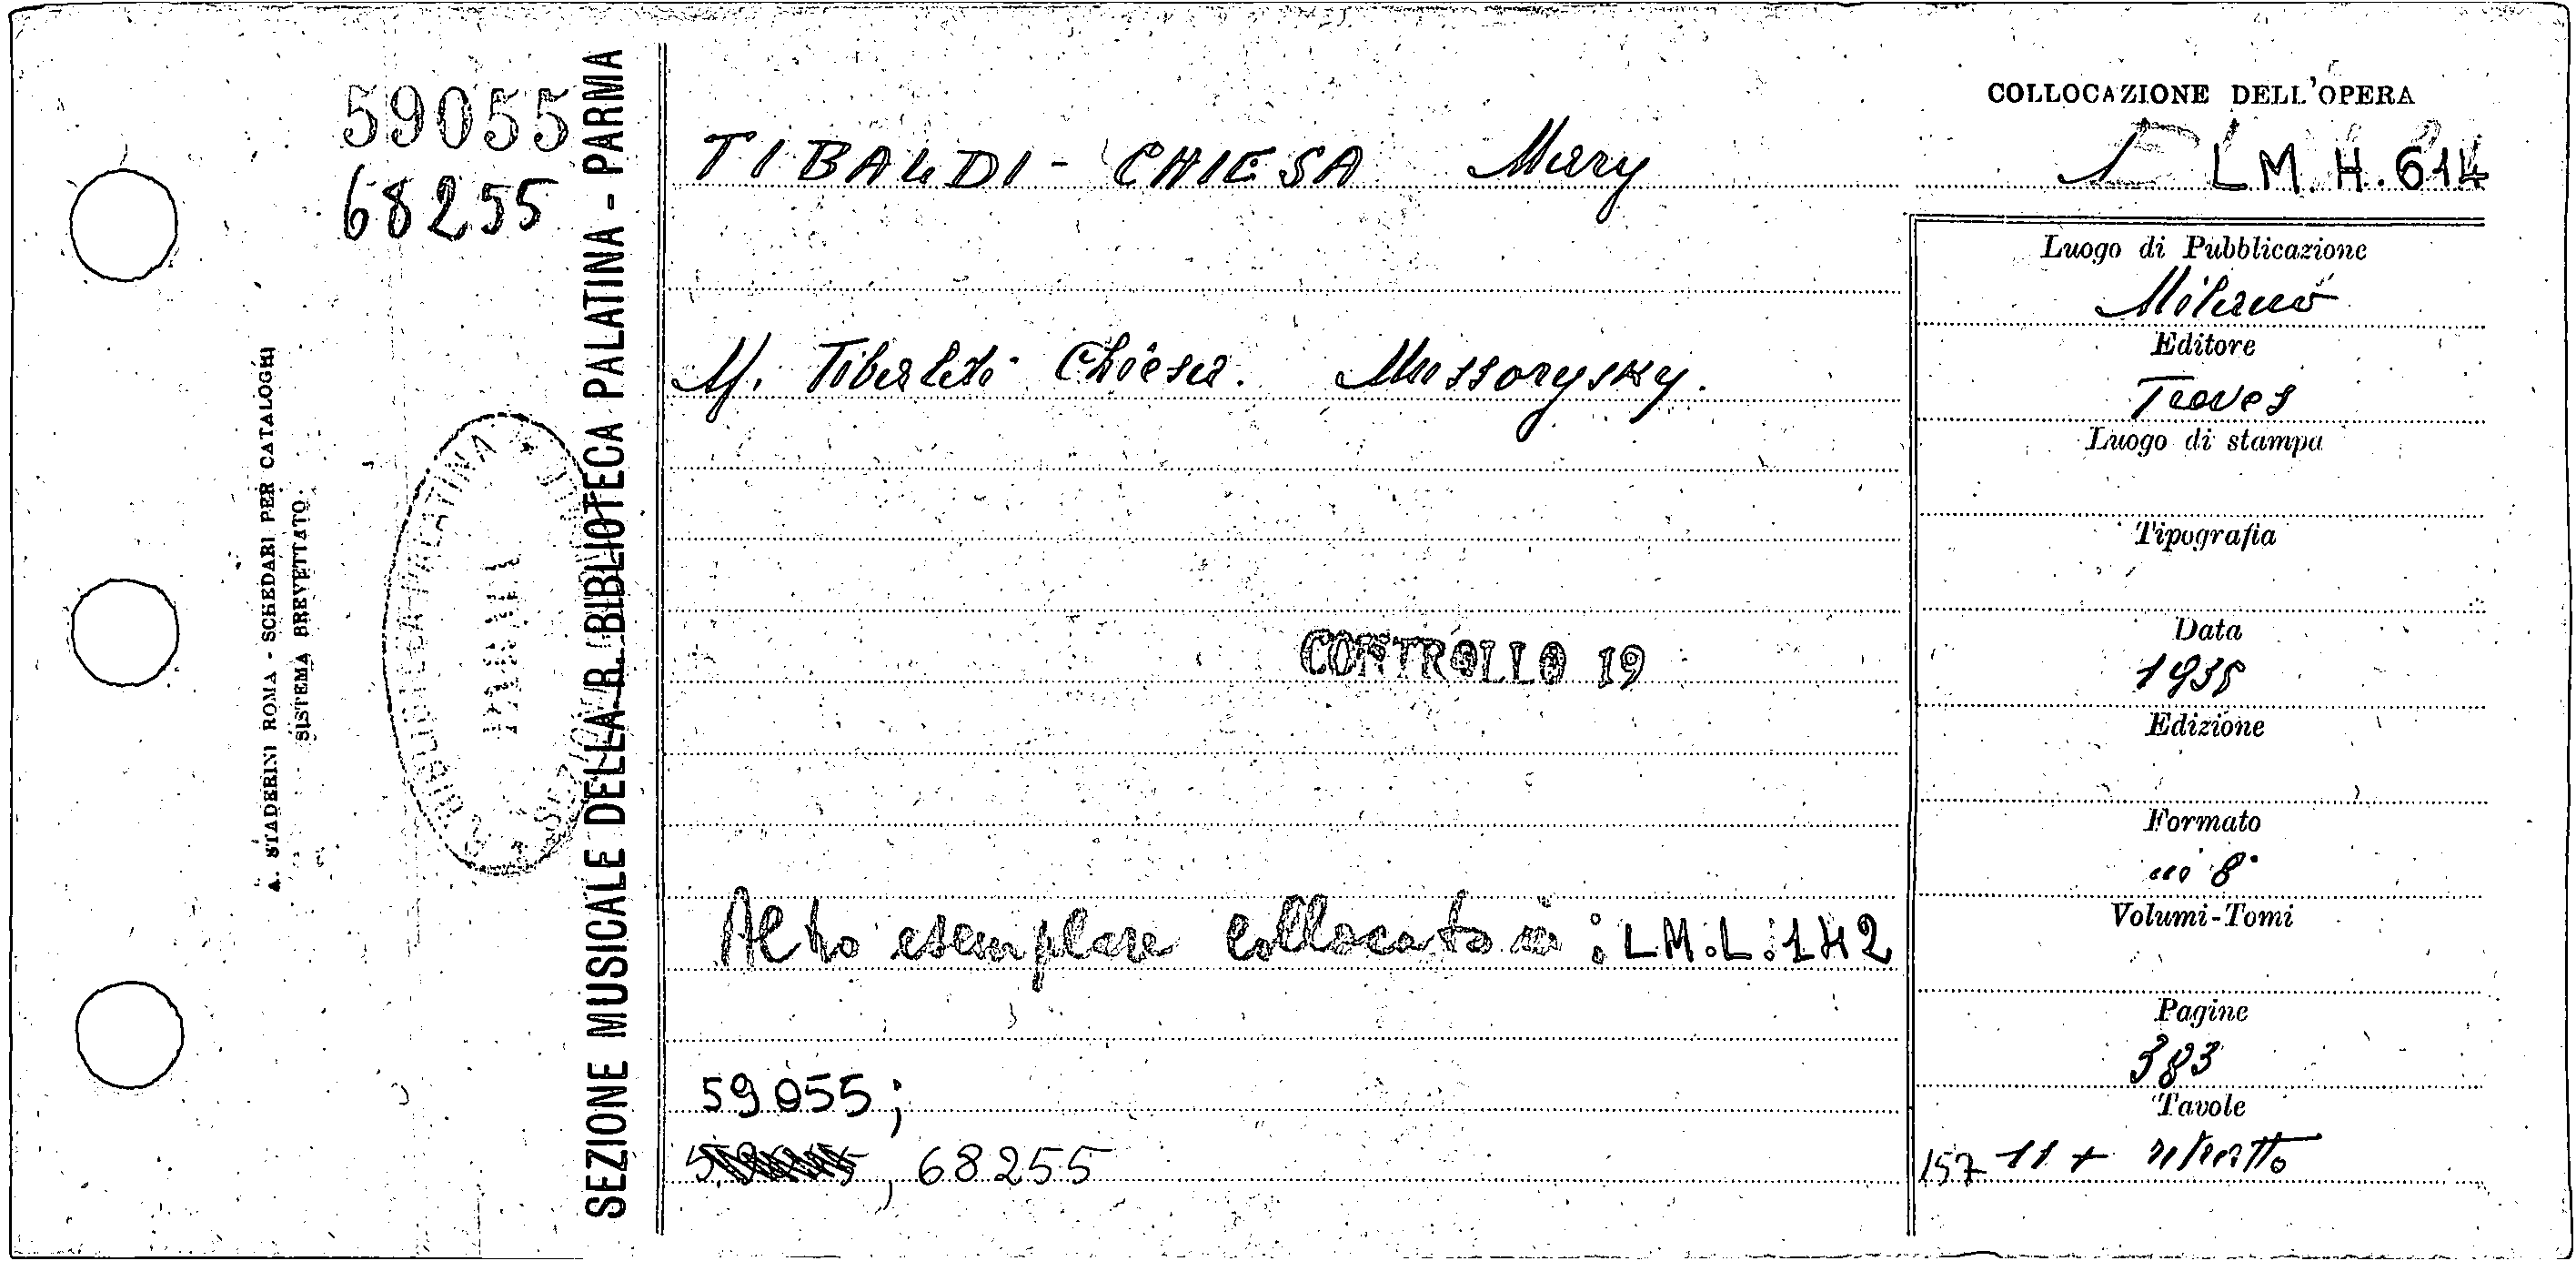 59055
68255
A. STADERINI ROMA - SCHEDARI PER CATALOGHI
SISTEMA BREVETTATO.
PARMA
SEZIONE MUSICALE DELLA R. BIBLIOTECA PALATINA - PARMA
TIBALDI - CHIESA Mary
M. Tibaldi Chiesa. Mussorgsky.
CONTROLLO 19
Altro esemplare collocato in : LM.L.142
59055;
, 68255
COLLOCAZIONE DELL'OPERA
LM.H.614
Luogo di Pubblicazione
Milano
Editore
Treves
Luogo di stampa
Tipografia
Data
1935
Edizione
Formato
in 8°
Volumi-Tomi
Pagine
383
Tavole
157 11 + ritratto